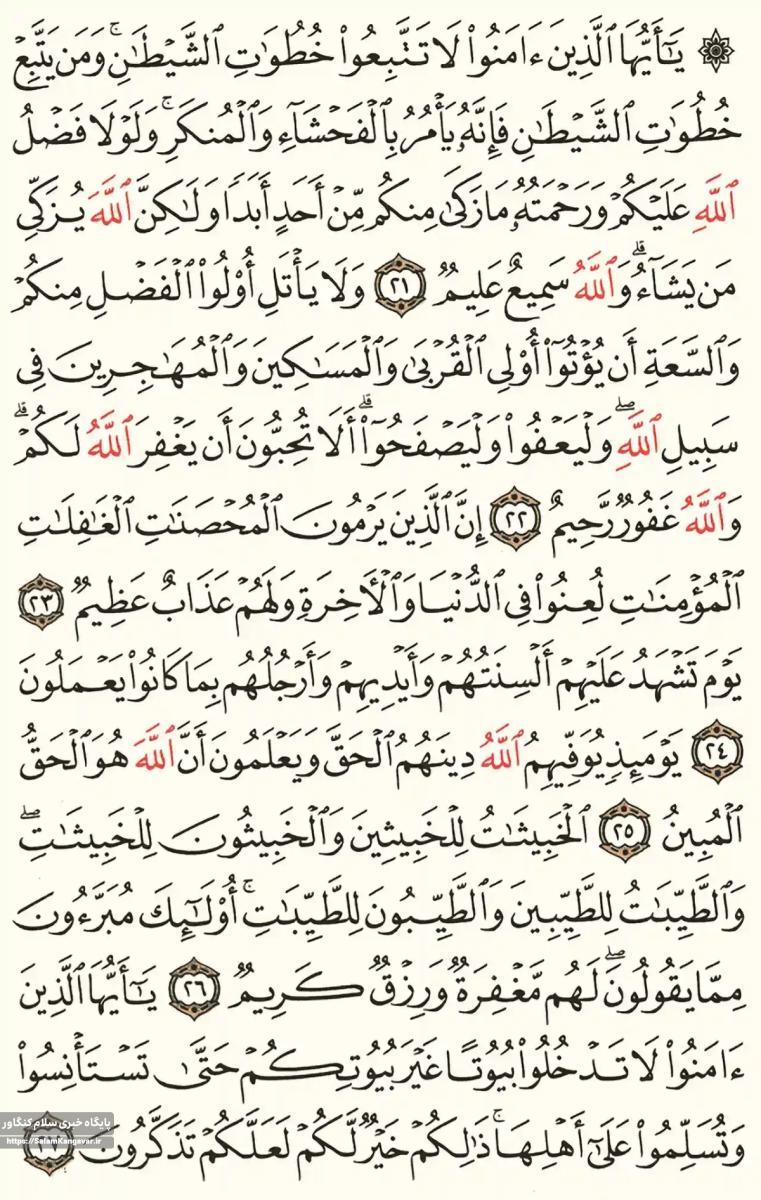 ۞ يَـٰٓأَيُّهَا ٱلَّذِينَ ءَامَنُوا۟ لَا تَتَّبِعُوا۟ خُطُوَٰتِ ٱلشَّيْطَـٰنِ ۚ وَمَن يَتَّبِعْ
خُطُوَٰتِ ٱلشَّيْطَـٰنِ فَإِنَّهُۥ يَأْمُرُ بِٱلْفَحْشَآءِ وَٱلْمُنكَرِ ۚ وَلَوْلَا فَضْلُ
ٱللَّهِ عَلَيْكُمْ وَرَحْمَتُهُۥ مَا زَكَىٰ مِنكُم مِّنْ أَحَدٍ أَبَدًا وَلَـٰكِنَّ ٱللَّهَ يُزَكِّى
مَن يَشَآءُ ۗ وَٱللَّهُ سَمِيعٌ عَلِيمٌ ٢١ وَلَا يَأْتَلِ أُو۟لُوا۟ ٱلْفَضْلِ مِنكُمْ
وَٱلسَّعَةِ أَن يُؤْتُوٓا۟ أُو۟لِى ٱلْقُرْبَىٰ وَٱلْمَسَـٰكِينَ وَٱلْمُهَـٰجِرِينَ فِى
سَبِيلِ ٱللَّهِ ۖ وَلْيَعْفُوا۟ وَلْيَصْفَحُوٓا۟ ۗ أَلَا تُحِبُّونَ أَن يَغْفِرَ ٱللَّهُ لَكُمْ ۗ
وَٱللَّهُ غَفُورٌ رَّحِيمٌ ٢٢ إِنَّ ٱلَّذِينَ يَرْمُونَ ٱلْمُحْصَنَـٰتِ ٱلْغَـٰفِلَـٰتِ
ٱلْمُؤْمِنَـٰتِ لُعِنُوا۟ فِى ٱلدُّنْيَا وَٱلْـَٔاخِرَةِ وَلَهُمْ عَذَابٌ عَظِيمٌ ٢٣
يَوْمَ تَشْهَدُ عَلَيْهِمْ أَلْسِنَتُهُمْ وَأَيْدِيهِمْ وَأَرْجُلُهُم بِمَا كَانُوا۟ يَعْمَلُونَ
٢٤ يَوْمَئِذٍ يُوَفِّيهِمُ ٱللَّهُ دِينَهُمُ ٱلْحَقَّ وَيَعْلَمُونَ أَنَّ ٱللَّهَ هُوَ ٱلْحَقُّ
ٱلْمُبِينُ ٢٥ ٱلْخَبِيثَـٰتُ لِلْخَبِيثِينَ وَٱلْخَبِيثُونَ لِلْخَبِيثَـٰتِ ۖ
وَٱلطَّيِّبَـٰتُ لِلطَّيِّبِينَ وَٱلطَّيِّبُونَ لِلطَّيِّبَـٰتِ ۚ أُو۟لَـٰٓئِكَ مُبَرَّءُونَ
مِمَّا يَقُولُونَ ۖ لَهُم مَّغْفِرَةٌ وَرِزْقٌ كَرِيمٌ ٢٦ يَـٰٓأَيُّهَا ٱلَّذِينَ
ءَامَنُوا۟ لَا تَدْخُلُوا۟ بُيُوتًا غَيْرَ بُيُوتِكُمْ حَتَّىٰ تَسْتَأْنِسُوا۟
وَتُسَلِّمُوا۟ عَلَىٰٓ أَهْلِهَا ۚ ذَٰلِكُمْ خَيْرٌ لَّكُمْ لَعَلَّكُمْ تَذَكَّرُونَ ٢٧
پایگاه خبری سلام کنگاور
https://SalamKangavar.ir